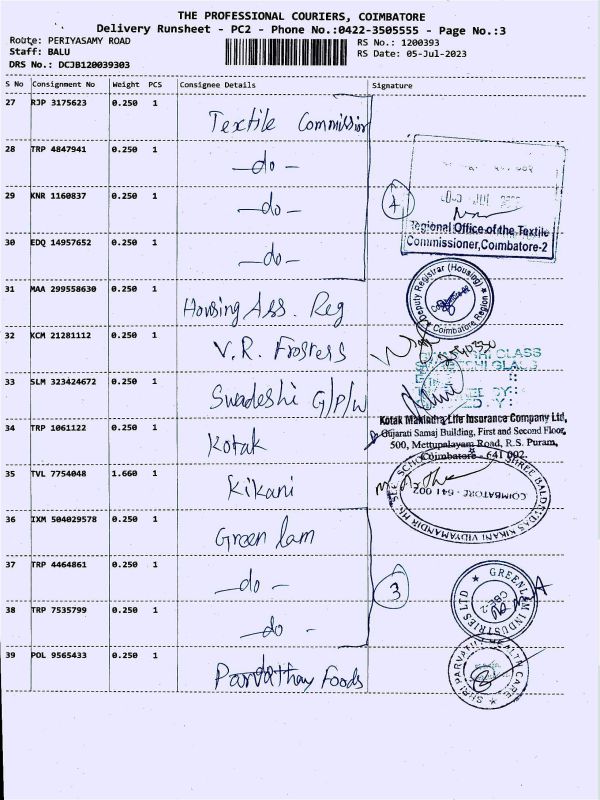 THE PROFESSIONAL COURIERS, COIMBATORE
Delivery Runsheet - PC2 - Phone No.:0422-3505555 - Page No.:3
Route: PERIYASAMY ROAD
RS No.: 1200393
Staff: BALU
RS Date: 05-Jul-2023
DRS No.: DCJB120039303
S No Consignment No Weight PCS Consignee Details Signature
27 RJP 3175623 0.250 1 Textile Commission
28 TRP 4847941 0.250 1 -do-
29 KNR 1160837 0.250 1 -do-
4
Regional Office of the Textile
Commissioner, Coimbatore-2
30 EDQ 14957652 0.250 1 -do-
31 MAA 299558630 0.250 1 Housing Ass. Reg
Deputy Registrar (Housing)
Coimbatore Region
32 KCM 21281112 0.250 1 V.R. Frosters
33 SLM 323424672 0.250 1 Swadeshi G/P/W
34 TRP 1061122 0.250 1 Kotak
Kotak Mahindra Life Insurance Company Ltd,
Gujarati Samaj Building, First and Second Floor,
500, Mettupalayam Road, R.S. Puram,
Coimbatore - 641 002.
35 TVL 7754048 1.660 1 Kikani
SHREE BALDEVDAS KIKANI VIDYAMANDIR
COIMBATORE - 641 002
36 IXM 504029578 0.250 1 Green lam
37 TRP 4464861 0.250 1 -do-
3
GREENLAM INDUSTRIES LTD
CBE-2
38 TRP 7535799 0.250 1 -do-
39 POL 9565433 0.250 1 Foods
SHRI PARVATHY HEALTH CARE